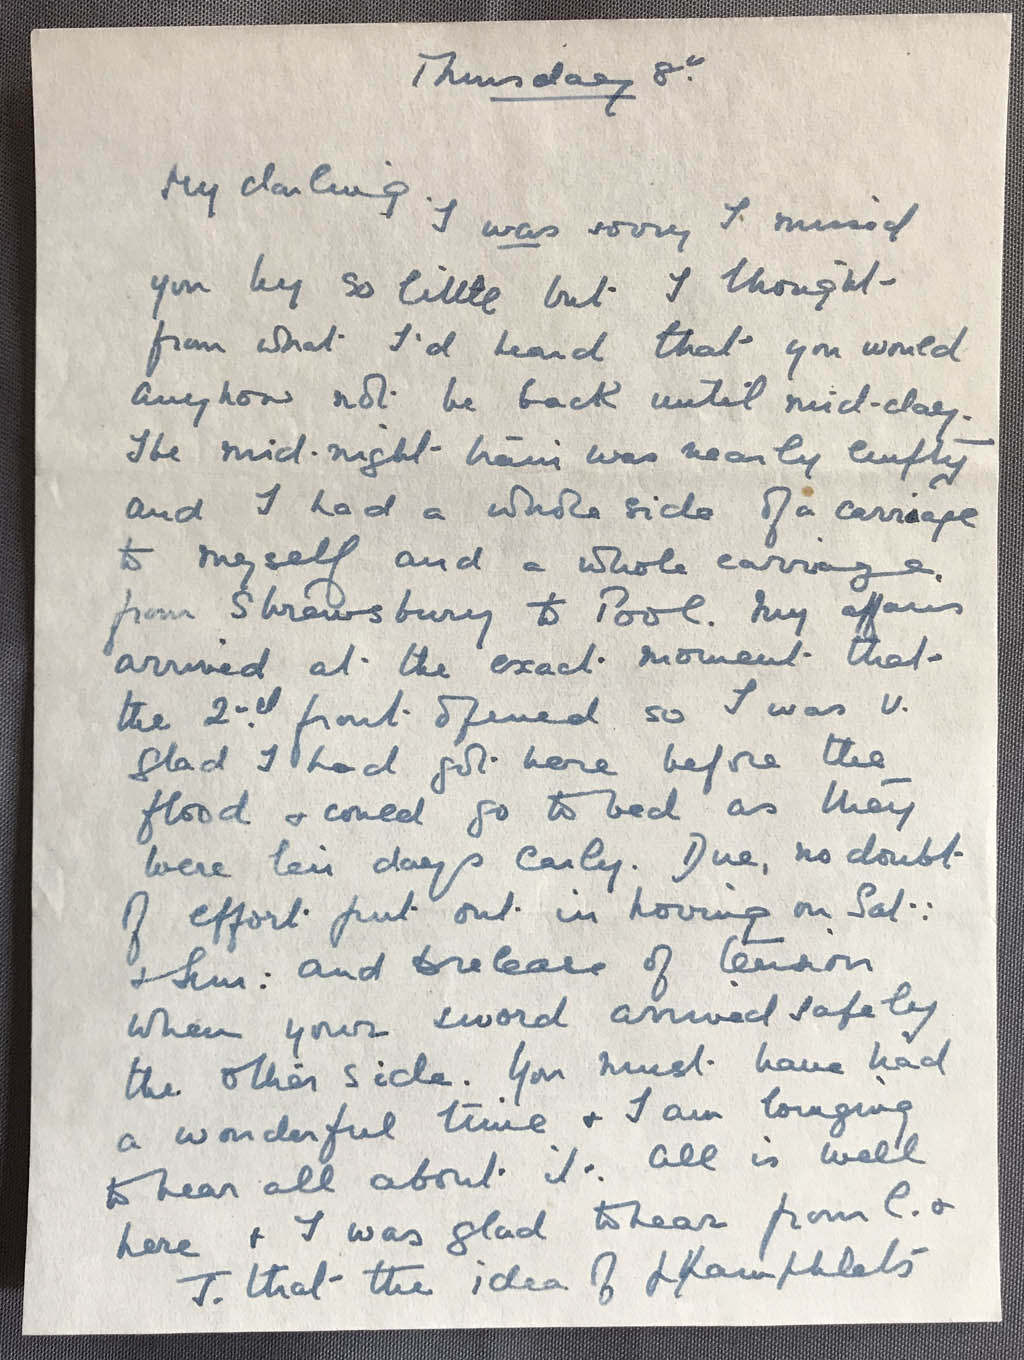 Thursday 8th.
My darling.
I was sorry I missed
you by so little but I thought
from what I'd heard that you would
anyhow not be back until mid-day.
The mid-night train was nearly empty
and I had a whole side of a carriage
to myself and a whole carriage.
from Shrewsbury to Pool. My affairs
arrived at the exact moment that
the 2nd front opened so I was v.
glad I had got here before the
flood & could go to bed as they
were ten days early. Due, no doubt
of effort put out in hoving on Sat:
& Sun: and release of tension
when your sword arrived safely
the other side. You must have had
a wonderful time & I am longing
to hear all about it. All is well
here & I was glad to hear from C. &
J. that the idea of pamphlets